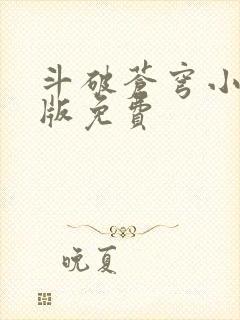 斗破苍穹小
版免費
晚夏